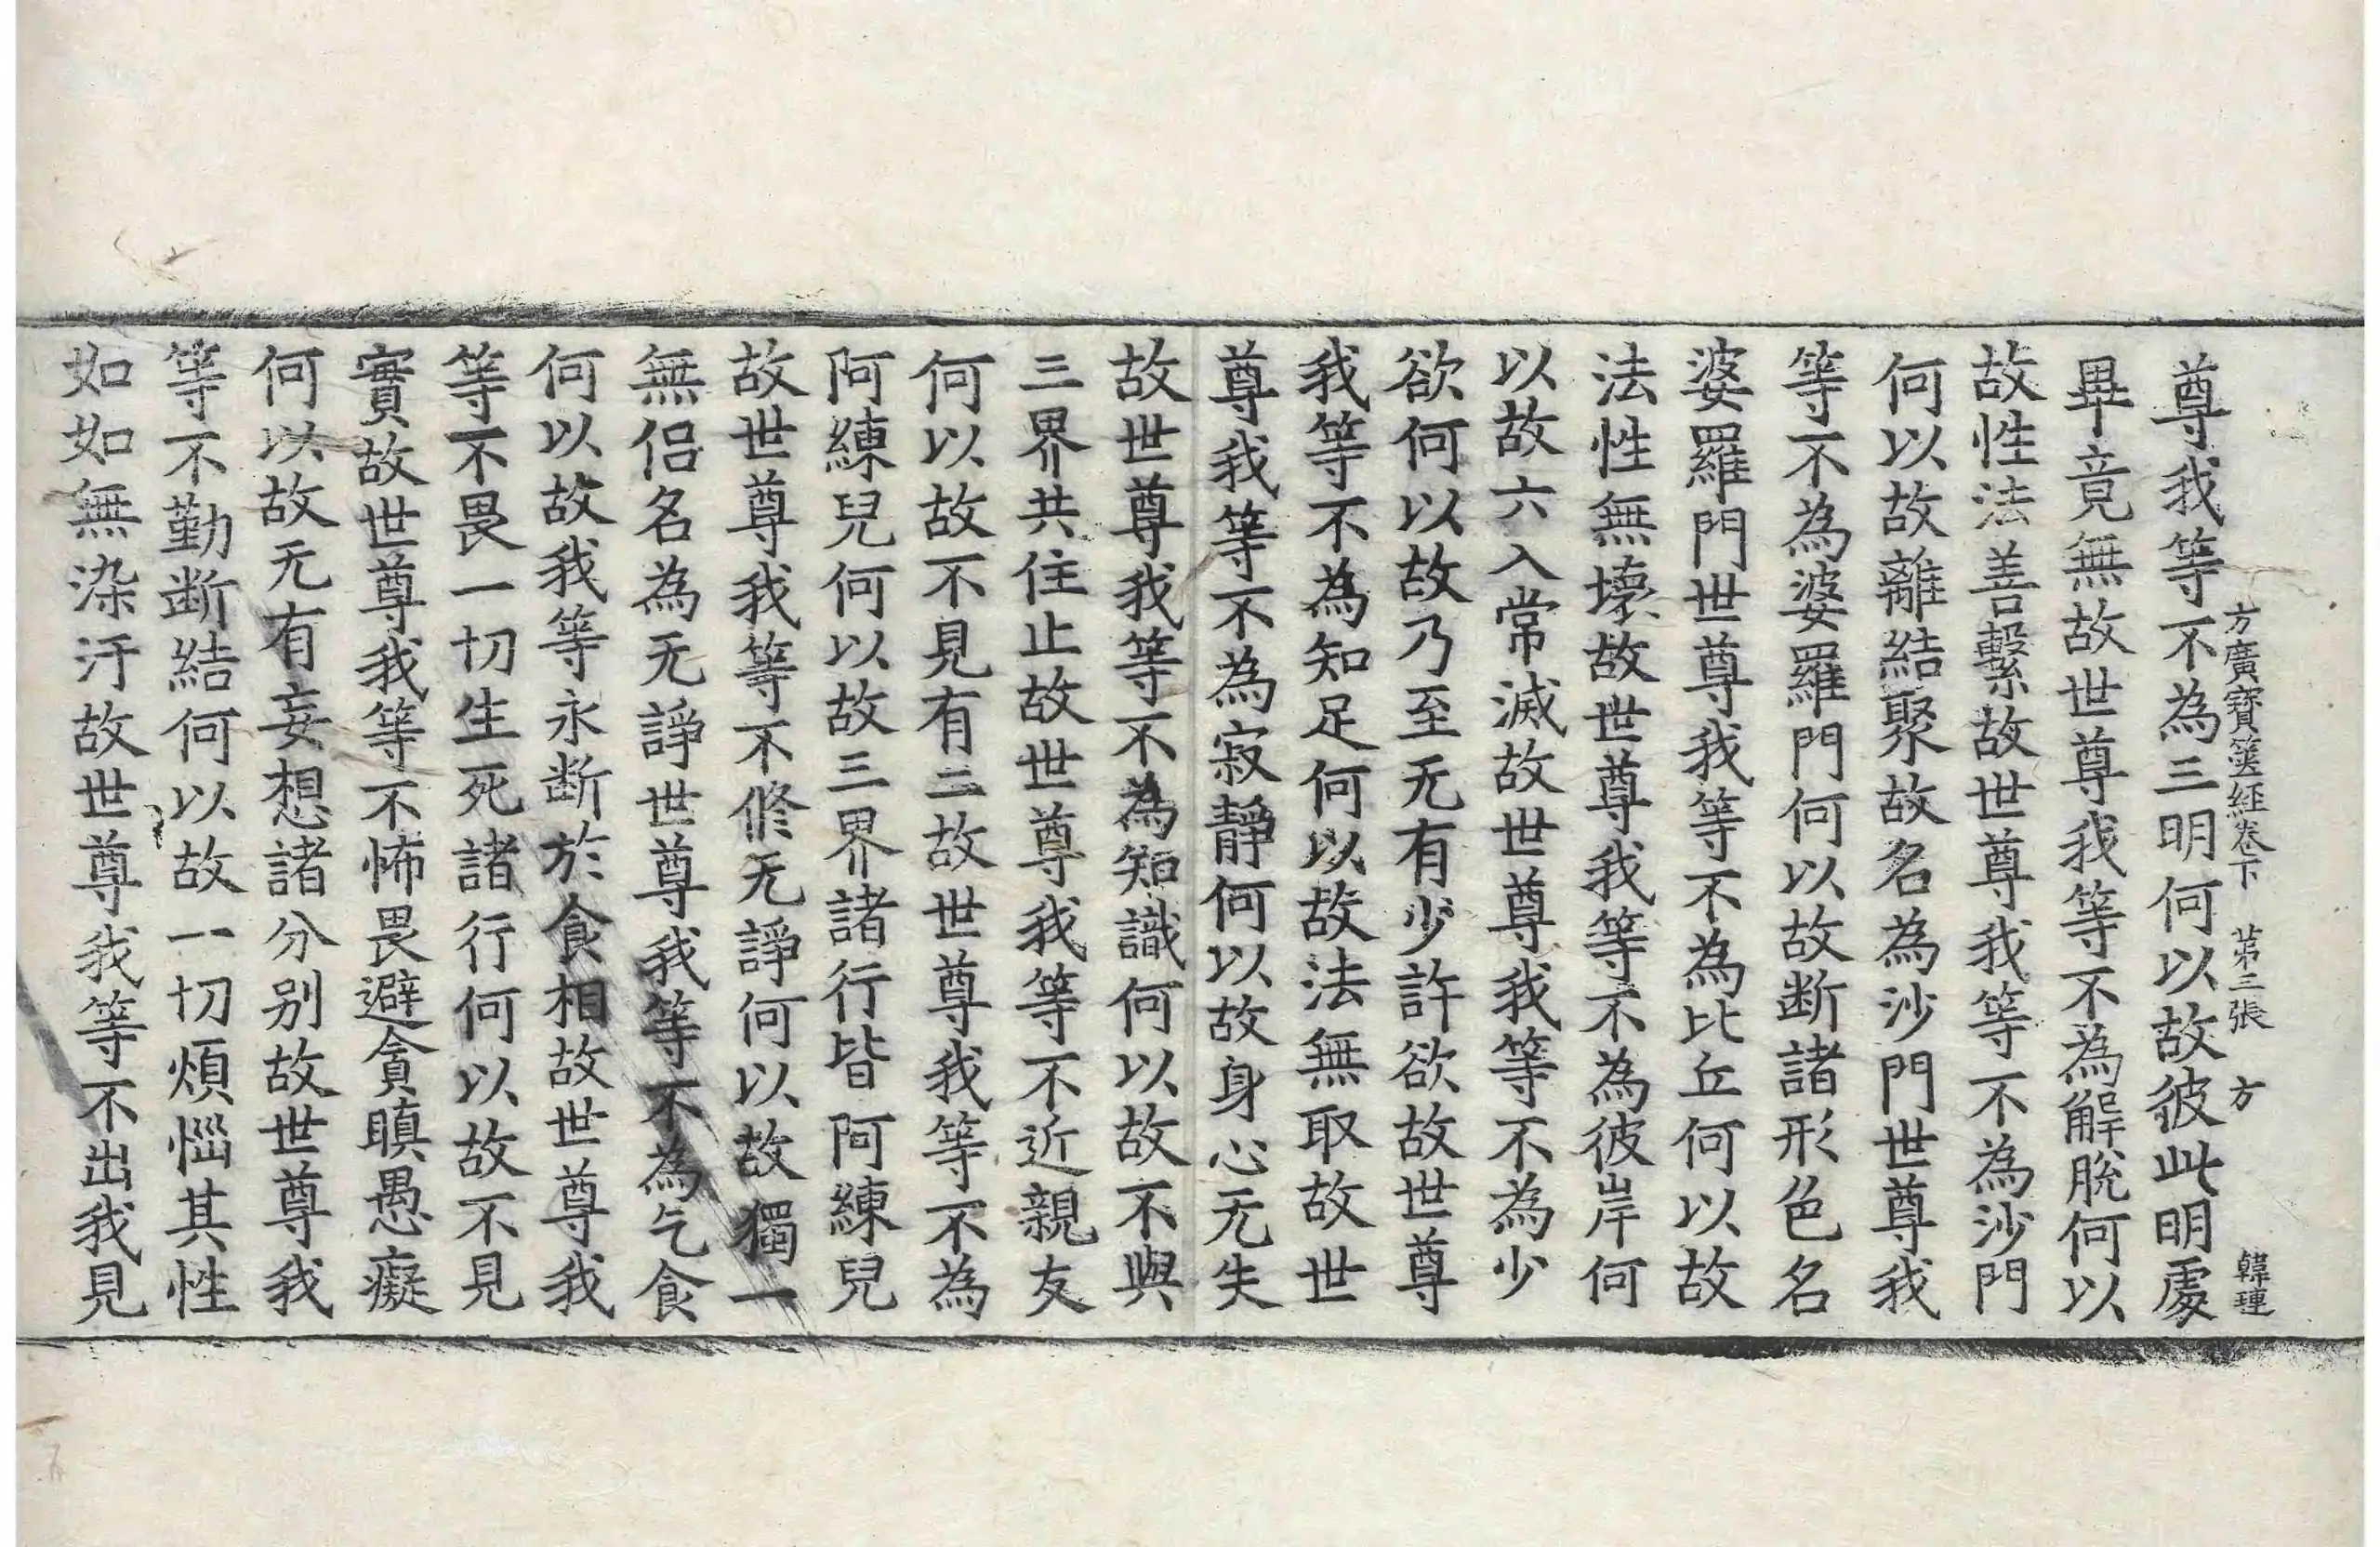 方廣寶篋経卷下 第三張 方 韓璉
尊我等不為三明何以故彼此明處
畢竟無故世尊我等不為解脫何以
故性法善繫故世尊我等不為沙門
何以故離結聚故名為沙門世尊我
等不為婆羅門何以故断諸形色名
婆羅門世尊我等不為比丘何以故
法性無壞故世尊我等不為彼岸何
以故六入常滅故世尊我等不為少
欲何以故乃至无有少許欲故世尊
我等不為知足何以故法無取故世
尊我等不為寂靜何以故身心无失
故世尊我等不為知識何以故不與
三界共住止故世尊我等不近親友
何以故不見有二故世尊我等不為
阿練兒何以故三界諸行皆阿練兒
故世尊我等不修无諍何以故獨一
無侶名為无諍世尊我等不為乞食
何以故我等永断於食相故世尊我
等不畏一切生死諸行何以故不見
實故世尊我等不怖畏避貪瞋愚癡
何以故无有妄想諸分别故世尊我
等不勤断結何以故一切煩惱其性
如如無染汙故世尊我等不出我見